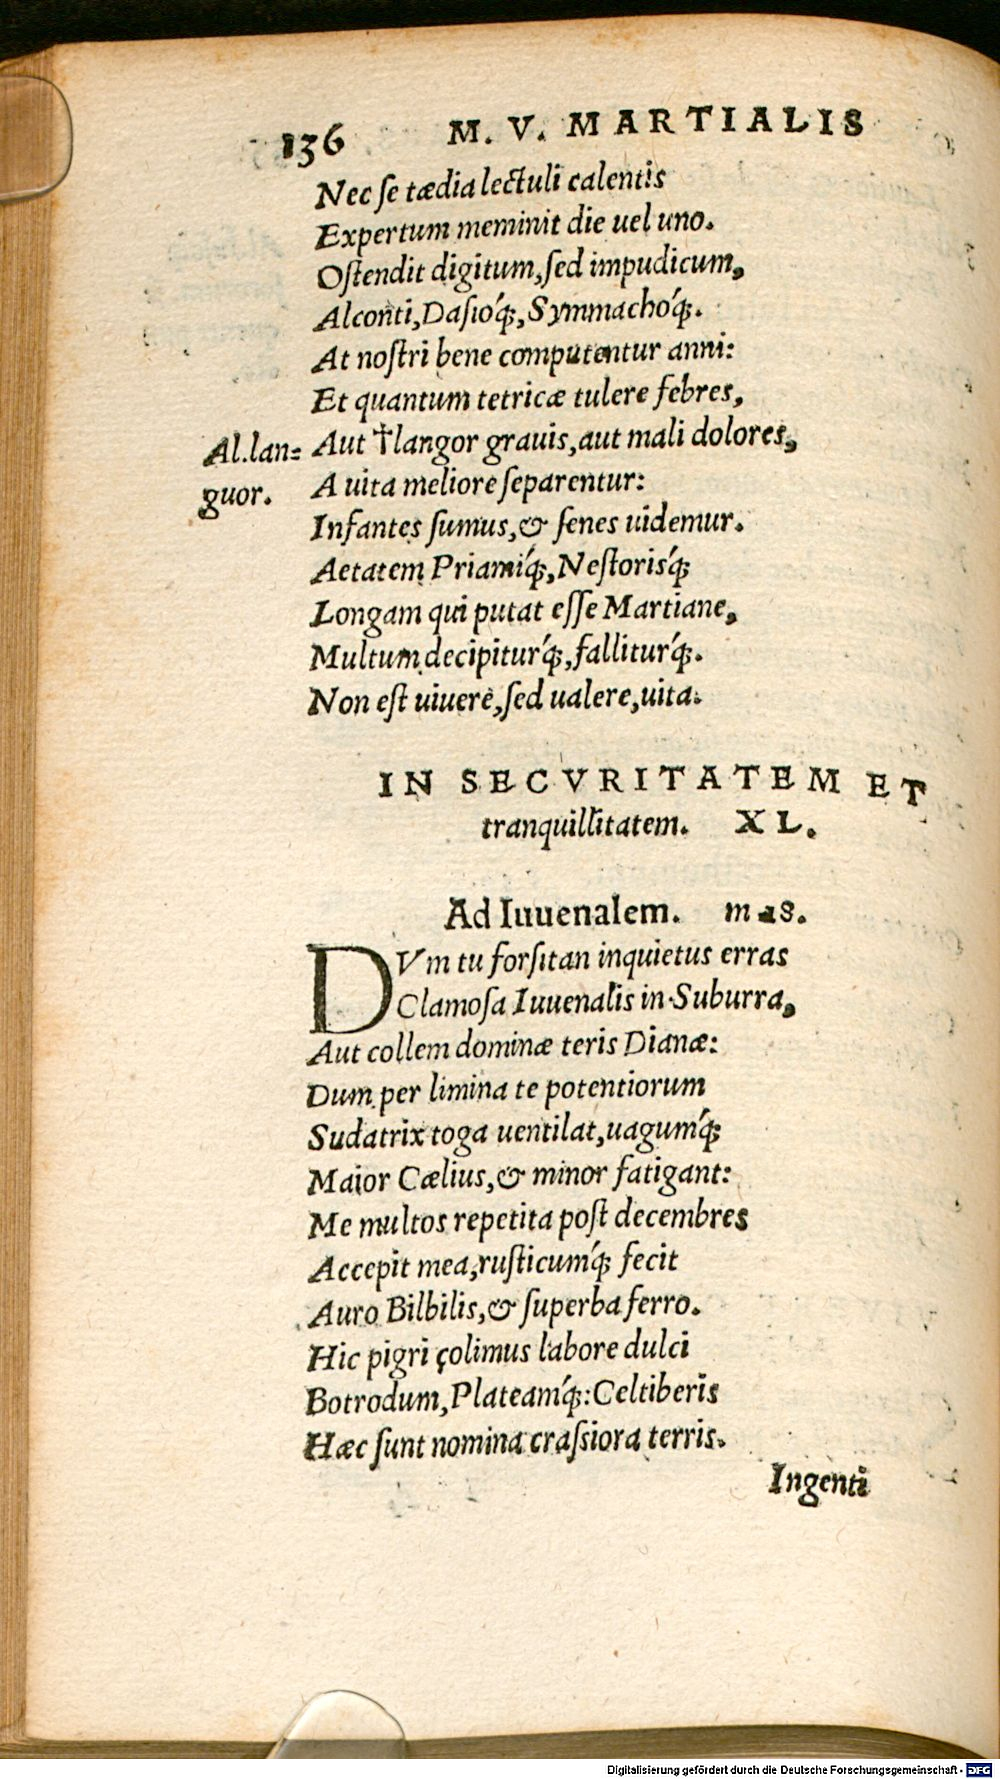 136 M. V. MARTIALIS
Nec se tædia lectuli calentis
Expertum meminit die uel uno.
Ostendit digitum, sed impudicum,
Alconti, Dasioq́;, Symmachoq́;.
At nostri bene computentur anni:
Et quantum tetricæ tulere febres,
Al. lan= Aut †langor grauis, aut mali dolores,
guor. A uita meliore separentur:
Infantes sumus, & senes uidemur.
Aetatem Priamiq́;, Nestorisq́;
Longam qui putat esse Martiane,
Multum decipiturq́;, falliturq́;.
Non est uiuere, sed ualere, uita.
IN SECVRITATEM ET
tranquillitatem. XL.
Ad Iuuenalem. 
DVm tu forsitan inquietus erras
Clamosa Iuuenalis in Suburra,
Aut collem dominæ teris Dianæ:
Dum per limina te potentiorum
Sudatrix toga uentilat, uagumq́;
Maior Cælius, & minor fatigant:
Me multos repetita post decembres
Accepit mea, rusticumq́; fecit
Auro Bilbilis, & superba ferro.
Hic pigri colimus labore dulci
Botrodum, Plateamq́;: Celtiberis
Hæc sunt nomina crassiora terris.
Ingenti
Digitalisierung gefördert durch die Deutsche Forschungsgemeinschaft - DFG